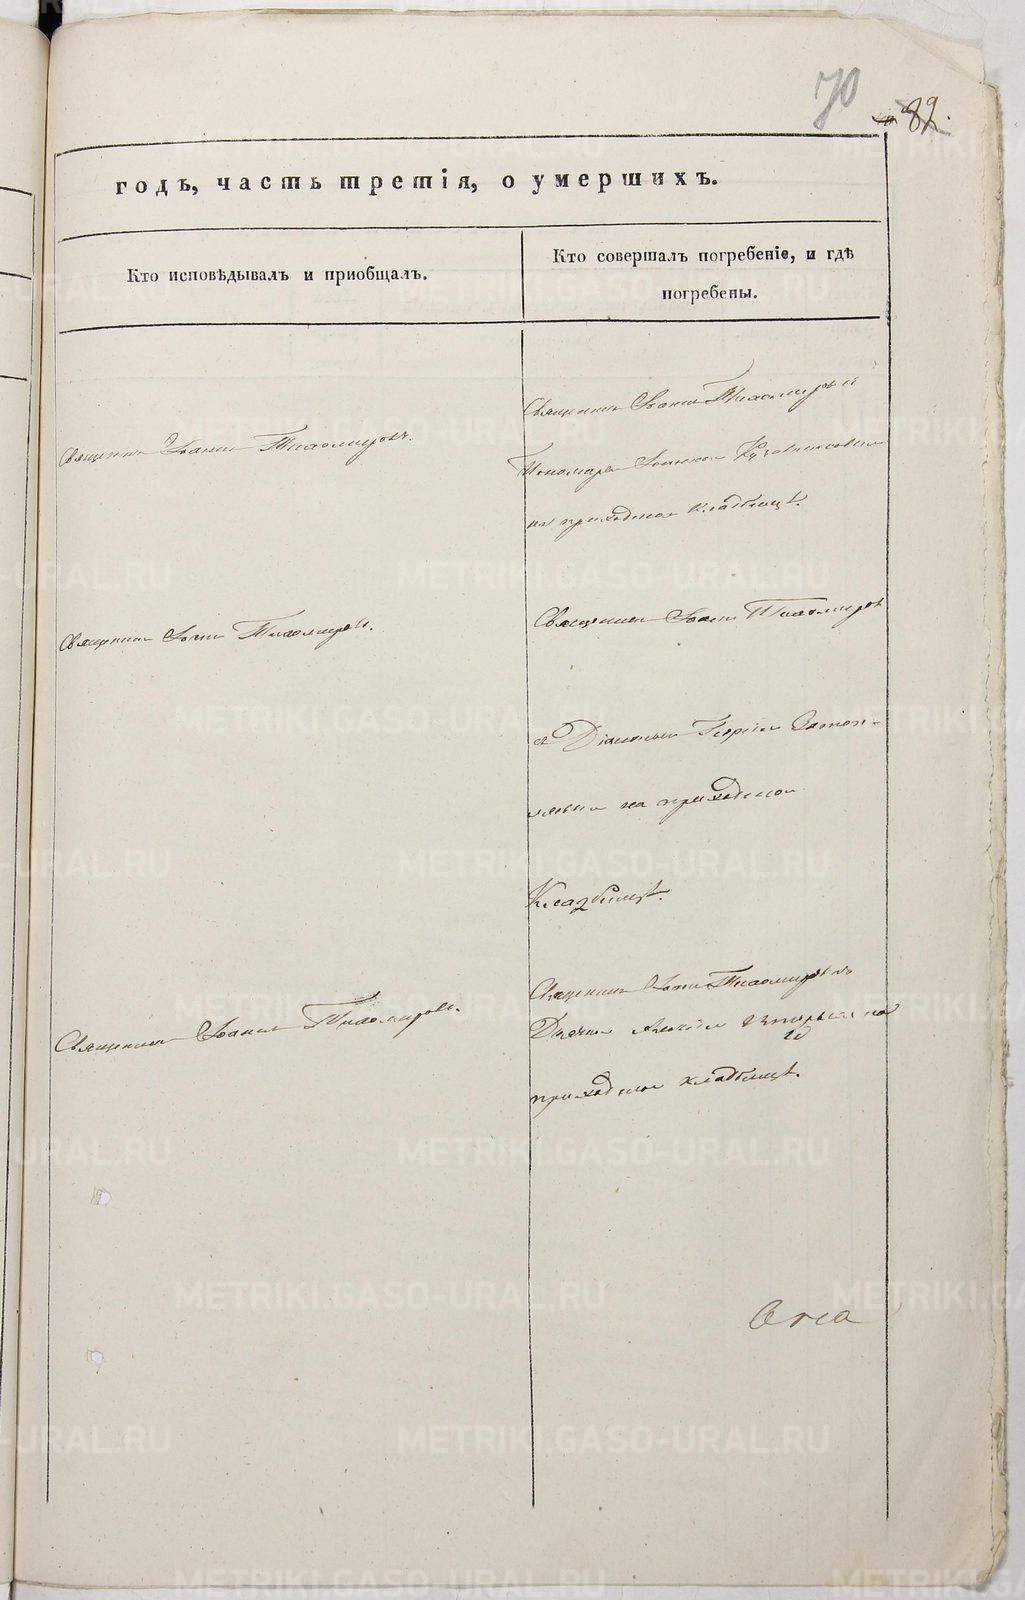 70
89.
годъ, часть третія, о умершихъ.
Кто исповѣдывалъ и пріобщалъ.
Кто совершалъ погребеніе, и гдѣ
погребены.
Священникъ Іоаннъ Тихомировъ.
Священникъ Іоаннъ Тихомировъ и
Пономарь
на приходскомъ кладбищѣ.
Священникъ Іоаннъ Тихомировъ.
Священникъ Іоаннъ Тихомировъ
съ Діакономъ Георгіемъ
на приходскомъ
Кладбищѣ.
Священникъ Іоаннъ Тихомировъ.
Священникъ Іоаннъ Тихомировъ съ
на
приходскомъ кладбищѣ.
METRIKI.GASO-URAL.RU